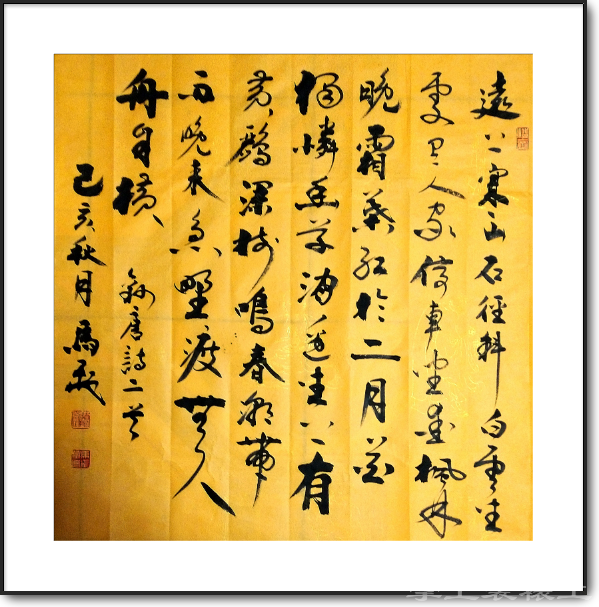 遠上寒山石徑斜白雲生
處人家停車坐愛楓林
晚霜葉紅於二月花
獨憐幽草澗邊生上有
黃鸝深樹鳴春潮帶
雨晚來急野渡無人
舟自橫 錄唐詩二首
己亥秋月 馬